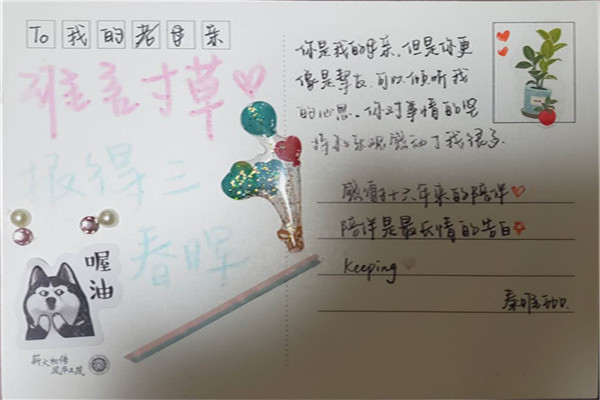 To 我的老母亲
谁言寸草
报得三
春晖
喔油
薪火相传
你是我的母亲，但是你更
像是朋友，可以倾听我
的心思、你对事情的坚
感动了我很多.
感谢十六年来的陪伴
陪伴是最长情的告白
Keeping